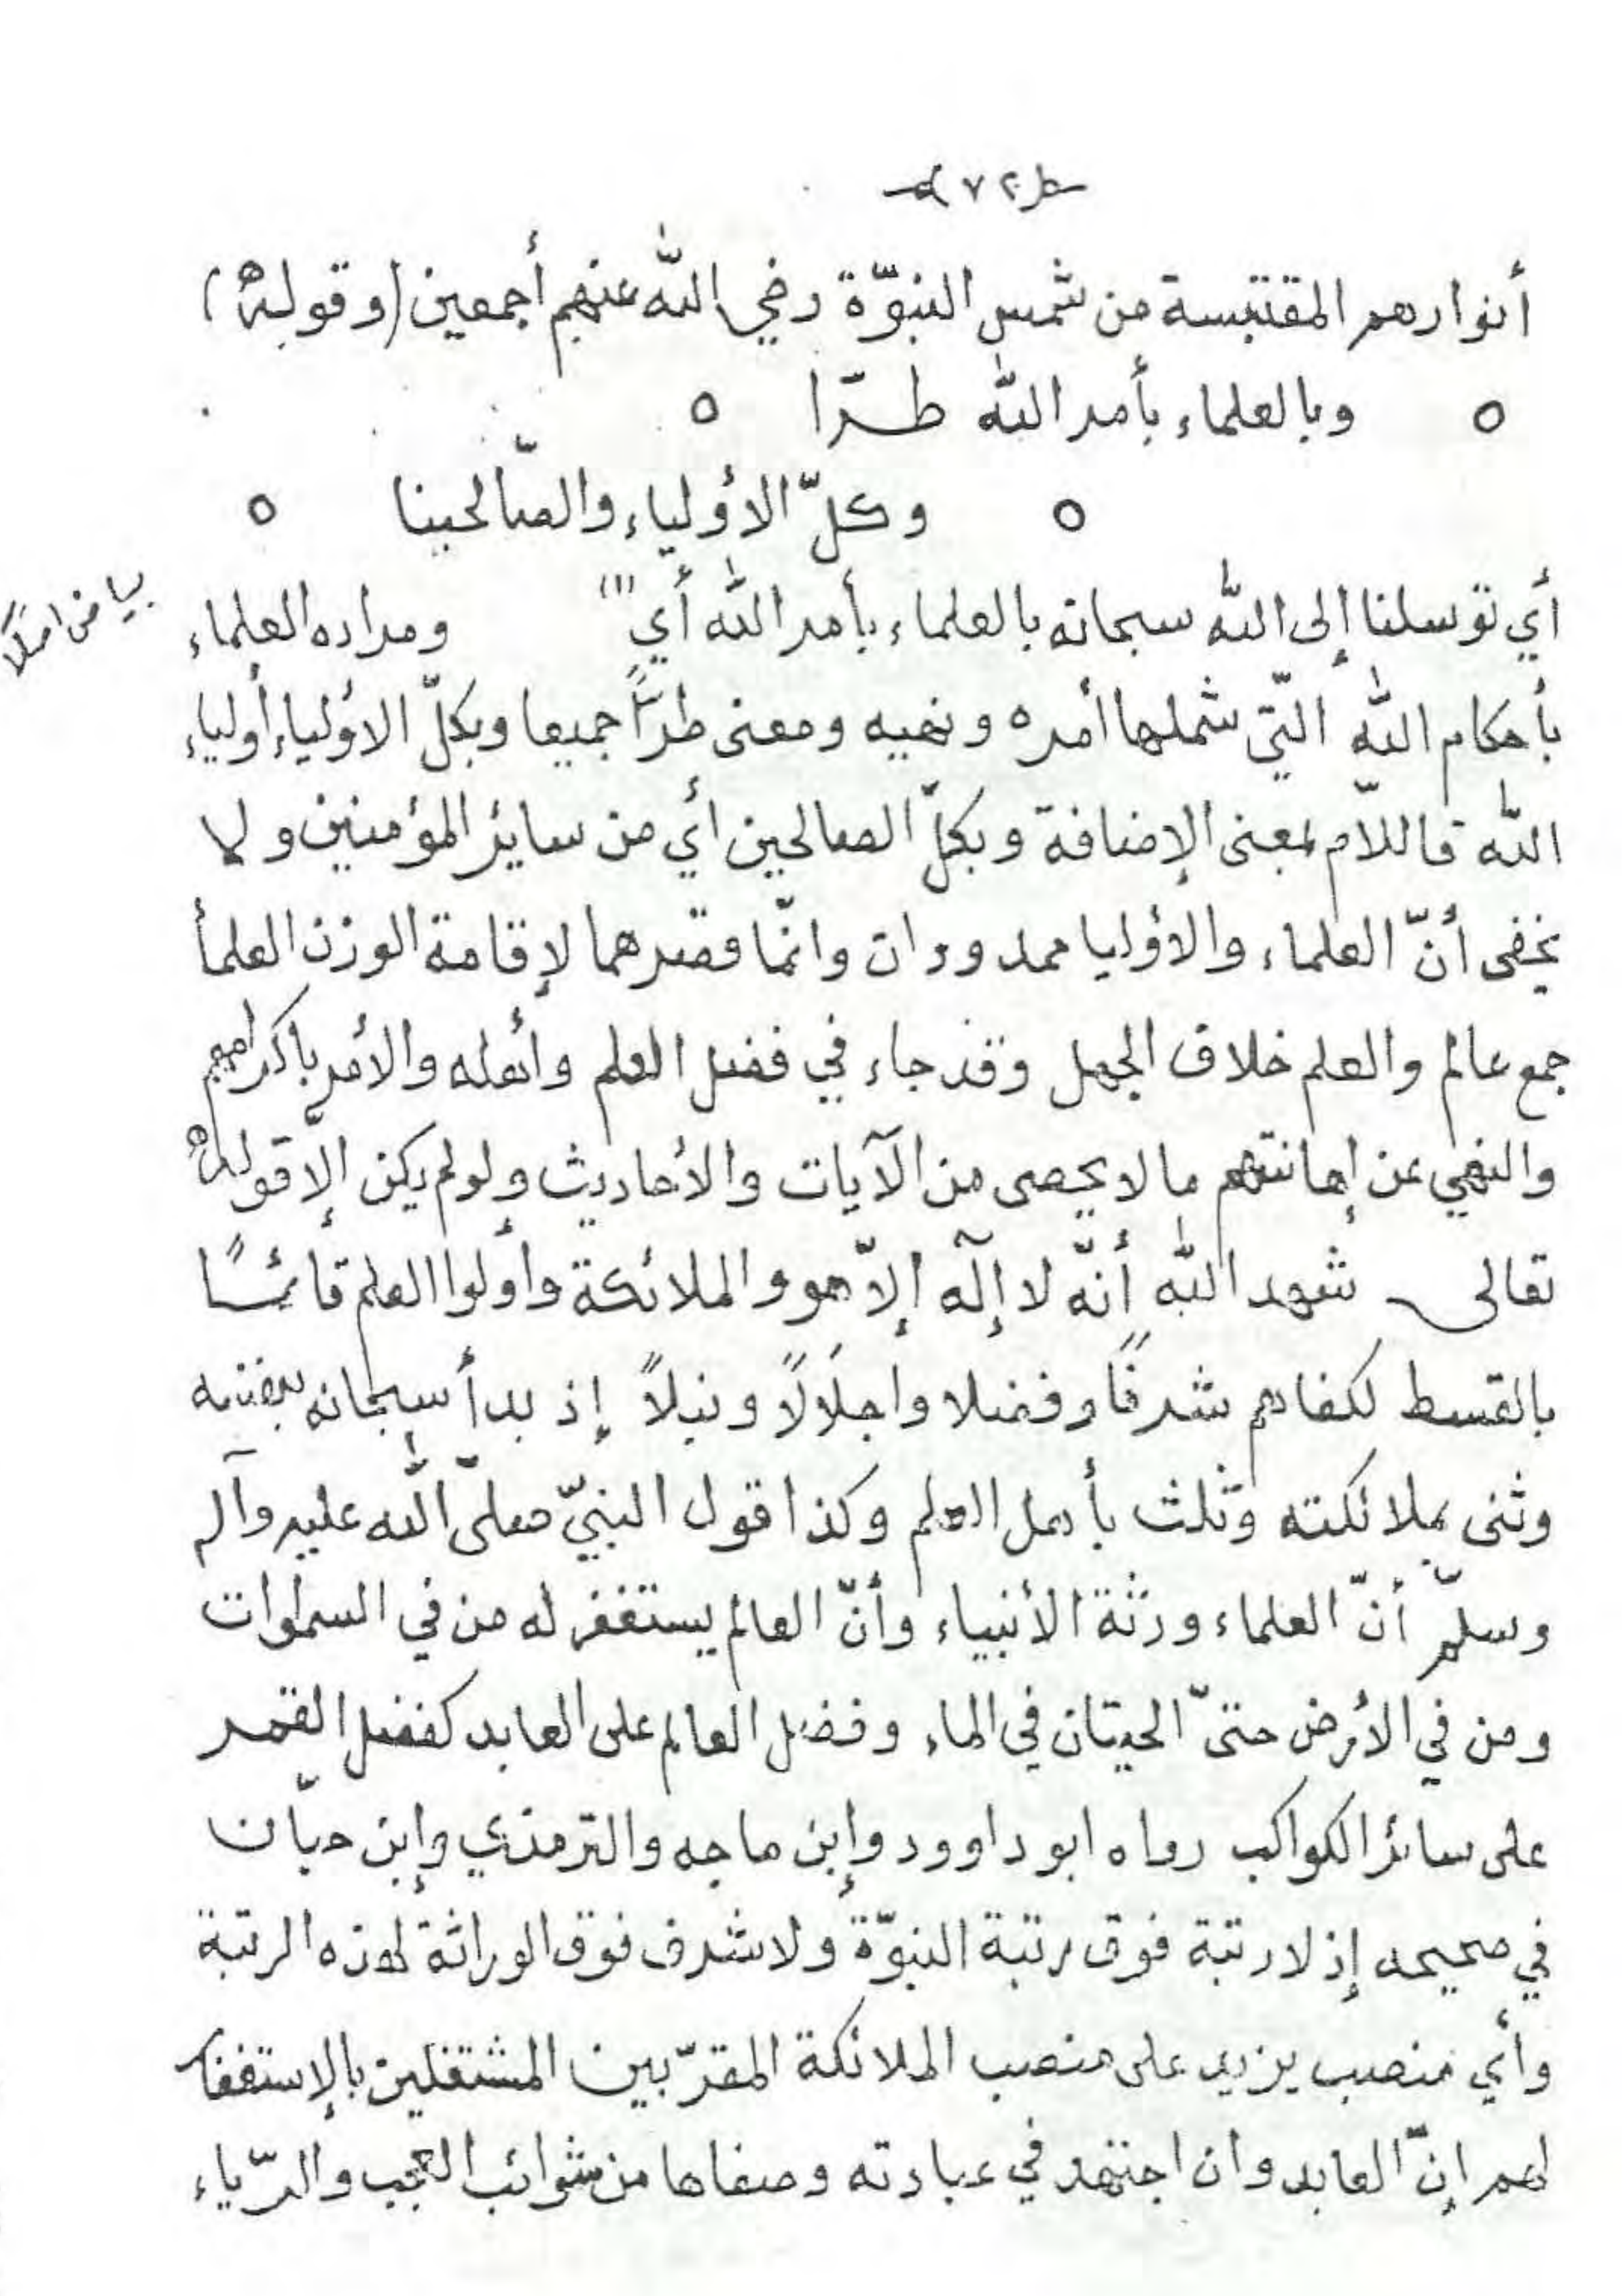 ٧٢
أنوارهم المقتبسة من شمس النبوّة رضي الله عنهم أجمعين (وقوله)
وبالعلماء بأمر الله طـرّا
وكلّ الأولياء والصّالحينا
أي توسلنا إلى الله سبحانه بالعلماء بأمر الله أي (١) ومراده العلماء
بياض أصلًا
بأحكام الله التّي شملها أمره ونهيه ومعنى طرّاً جميعا وبكلّ الأولياء أولياء
الله فاللاّم بمعنى الإضافة وبكلّ الصالحين أي من سايئر المؤمنين ولا
يخفى أنّ العلماء والأوليا ممدودان وانمّا قصرهما لإقامة الوزن العلمأ
جمع عالم والعلم خلاف الجهل وقد جاء في فضل العلم وأهله والأمر باكرامهم
والنهي عن إهانتهم ما لا يحصى من الآيات والأحاديث ولو لم يكن إلاّ قوله
تعالى شهد الله أنّه لا إلٓه إلاّ هو والملائكة وأولوا العلم قائمًـا
بالقسط لكفاهم شرفًا وفضلا واجلَالًا ونبلاً إذ بدأ سبحانه بنفسه
وثنى بملائكته وثلث بأهل العلم وكذا قول النبيّ صلىّ الله عليه وآله
وسلّم أنّ العلماء ورثة الأنبياء وأنّ العالم يستغفر له من في السمٰوات
ومن في الأرض حتىّ الحيتان في الماء وفضل العالم على العابد كفضل القمر
على سائر الكواكب رواه ابو داوود وإبن ماجه والترمذي وإبن حبّان
في صحيحه إذ لا رتبة فوق رتبة النبوّة ولا شرف فوق الوراثة لهذه الرتبة
وأي منصب يزيد على منصب الملائكة المقرّبين المشتغلين بالإستغفار
لهم إنّ العابد وان اجتهد في عبادته وصفاها من شوائب العجب والرّياء